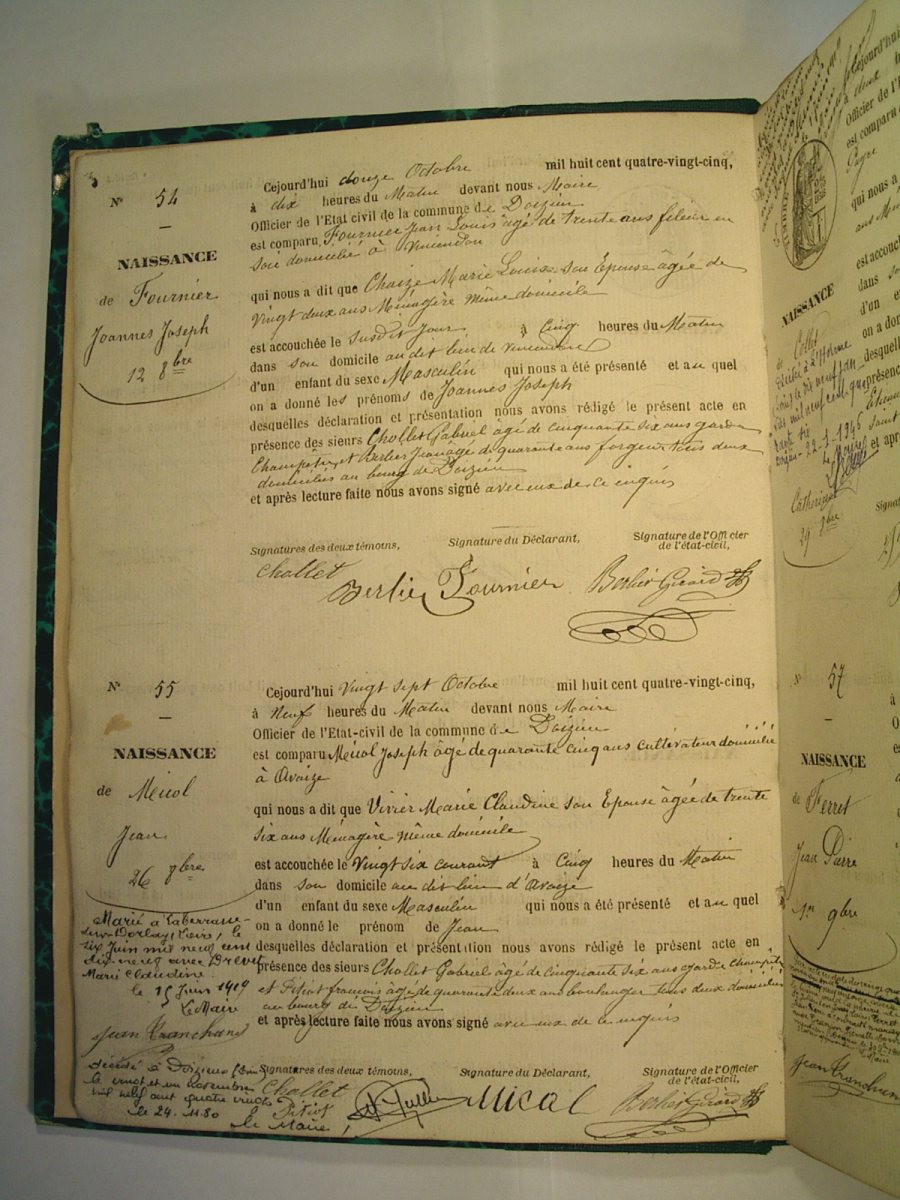 Nº 54
NAISSANCE
de Fournier
Joannes Joseph
12 8bre
Cejourd'hui douze Octobre mil huit cent quatre-vingt-cinq,
à dix heures du Matin devant nous Maire
Officier de l'Etat civil de la commune de Doizieu
est comparu Fournier Jean Louis âgé de trente ans fileur en
soie domicilié à
qui nous a dit que Chaize Marie Louise son Epouse âgée de
vingt deux ans Ménagère même domicile
est accouchée le susdit jour à cinq heures du Matin
dans son domicile au dit lieu de
d'un enfant du sexe Masculin qui nous a été présenté et au quel
on a donné les prénoms de Joannes Joseph
desquelles déclaration et présentation nous avons rédigé le présent acte en
présence des sieurs Chollet Gabriel âgé de cinquante six ans garde
Champêtre et Berlier Jean âgé de quarante ans forgeur tous deux
domiciliés au bourg de Doizieu
et après lecture faite nous avons signé avec eux de ce inquis
Signatures des deux témoins, Signature du Déclarant, Signature de l'Officier
de l'état-civil,
Chollet
Berlier Fournier Berlier Girard
Nº 55
NAISSANCE
de Micol
Jean
26 8bre
Cejourd'hui Vingt sept Octobre mil huit cent quatre-vingt-cinq,
à Neuf heures du Matin devant nous Maire
Officier de l'Etat-civil de la commune de Doizieu
est comparu Micol Joseph âgé de quarante cinq ans cultivateur domicilié
à Avaize
qui nous a dit que Vivier Marie Claudine son Epouse âgée de trente
six ans Ménagère même domicile
est accouchée le Vingt six courant à Cinq heures du Matin
dans son domicile au dit lieu d'Avaize
d'un enfant du sexe Masculin qui nous a été présenté et au quel
on a donné le prénom de Jean
desquelles déclaration et présentation nous avons rédigé le présent acte en
présence des sieurs Chollet Gabriel âgé de cinquante six ans garde champêtre
et Pitiot françois âgé de quarante deux ans boulanger tous deux domiciliés
au bourg de Doizieu
et après lecture faite nous avons signé avec eux de ce inquis
Signatures des deux témoins, Signature du Déclarant, Signature de l'Officier
de l'état-civil,
Chollet
Pitiot Micol Berlier Girard
Marié à Laterrasse-
sur-Dorlay, Loire, le
six Juin mil neuf cent
dix-neuf avec Drevet
Marie Claudine.
le 15 Juin 1919
Le Maire
Jean Tranchand
Décédé à Doizieux
le vingt et un novembre
mil neuf cent quatre vingt
le 24.11.80
le Maire,
Cejourd'hui
à deux
Officier de l'E
est compara
qui nous a
est accouch
dans
d'un
on a don
desquelle
présence
et apr
NAISSANCE
de Collet
22-1-1946
Catherine
29 8bre
Nº 57
NAISSANCE
de Ferret
Jean Pierre
1er 9bre
Jean Tranchand